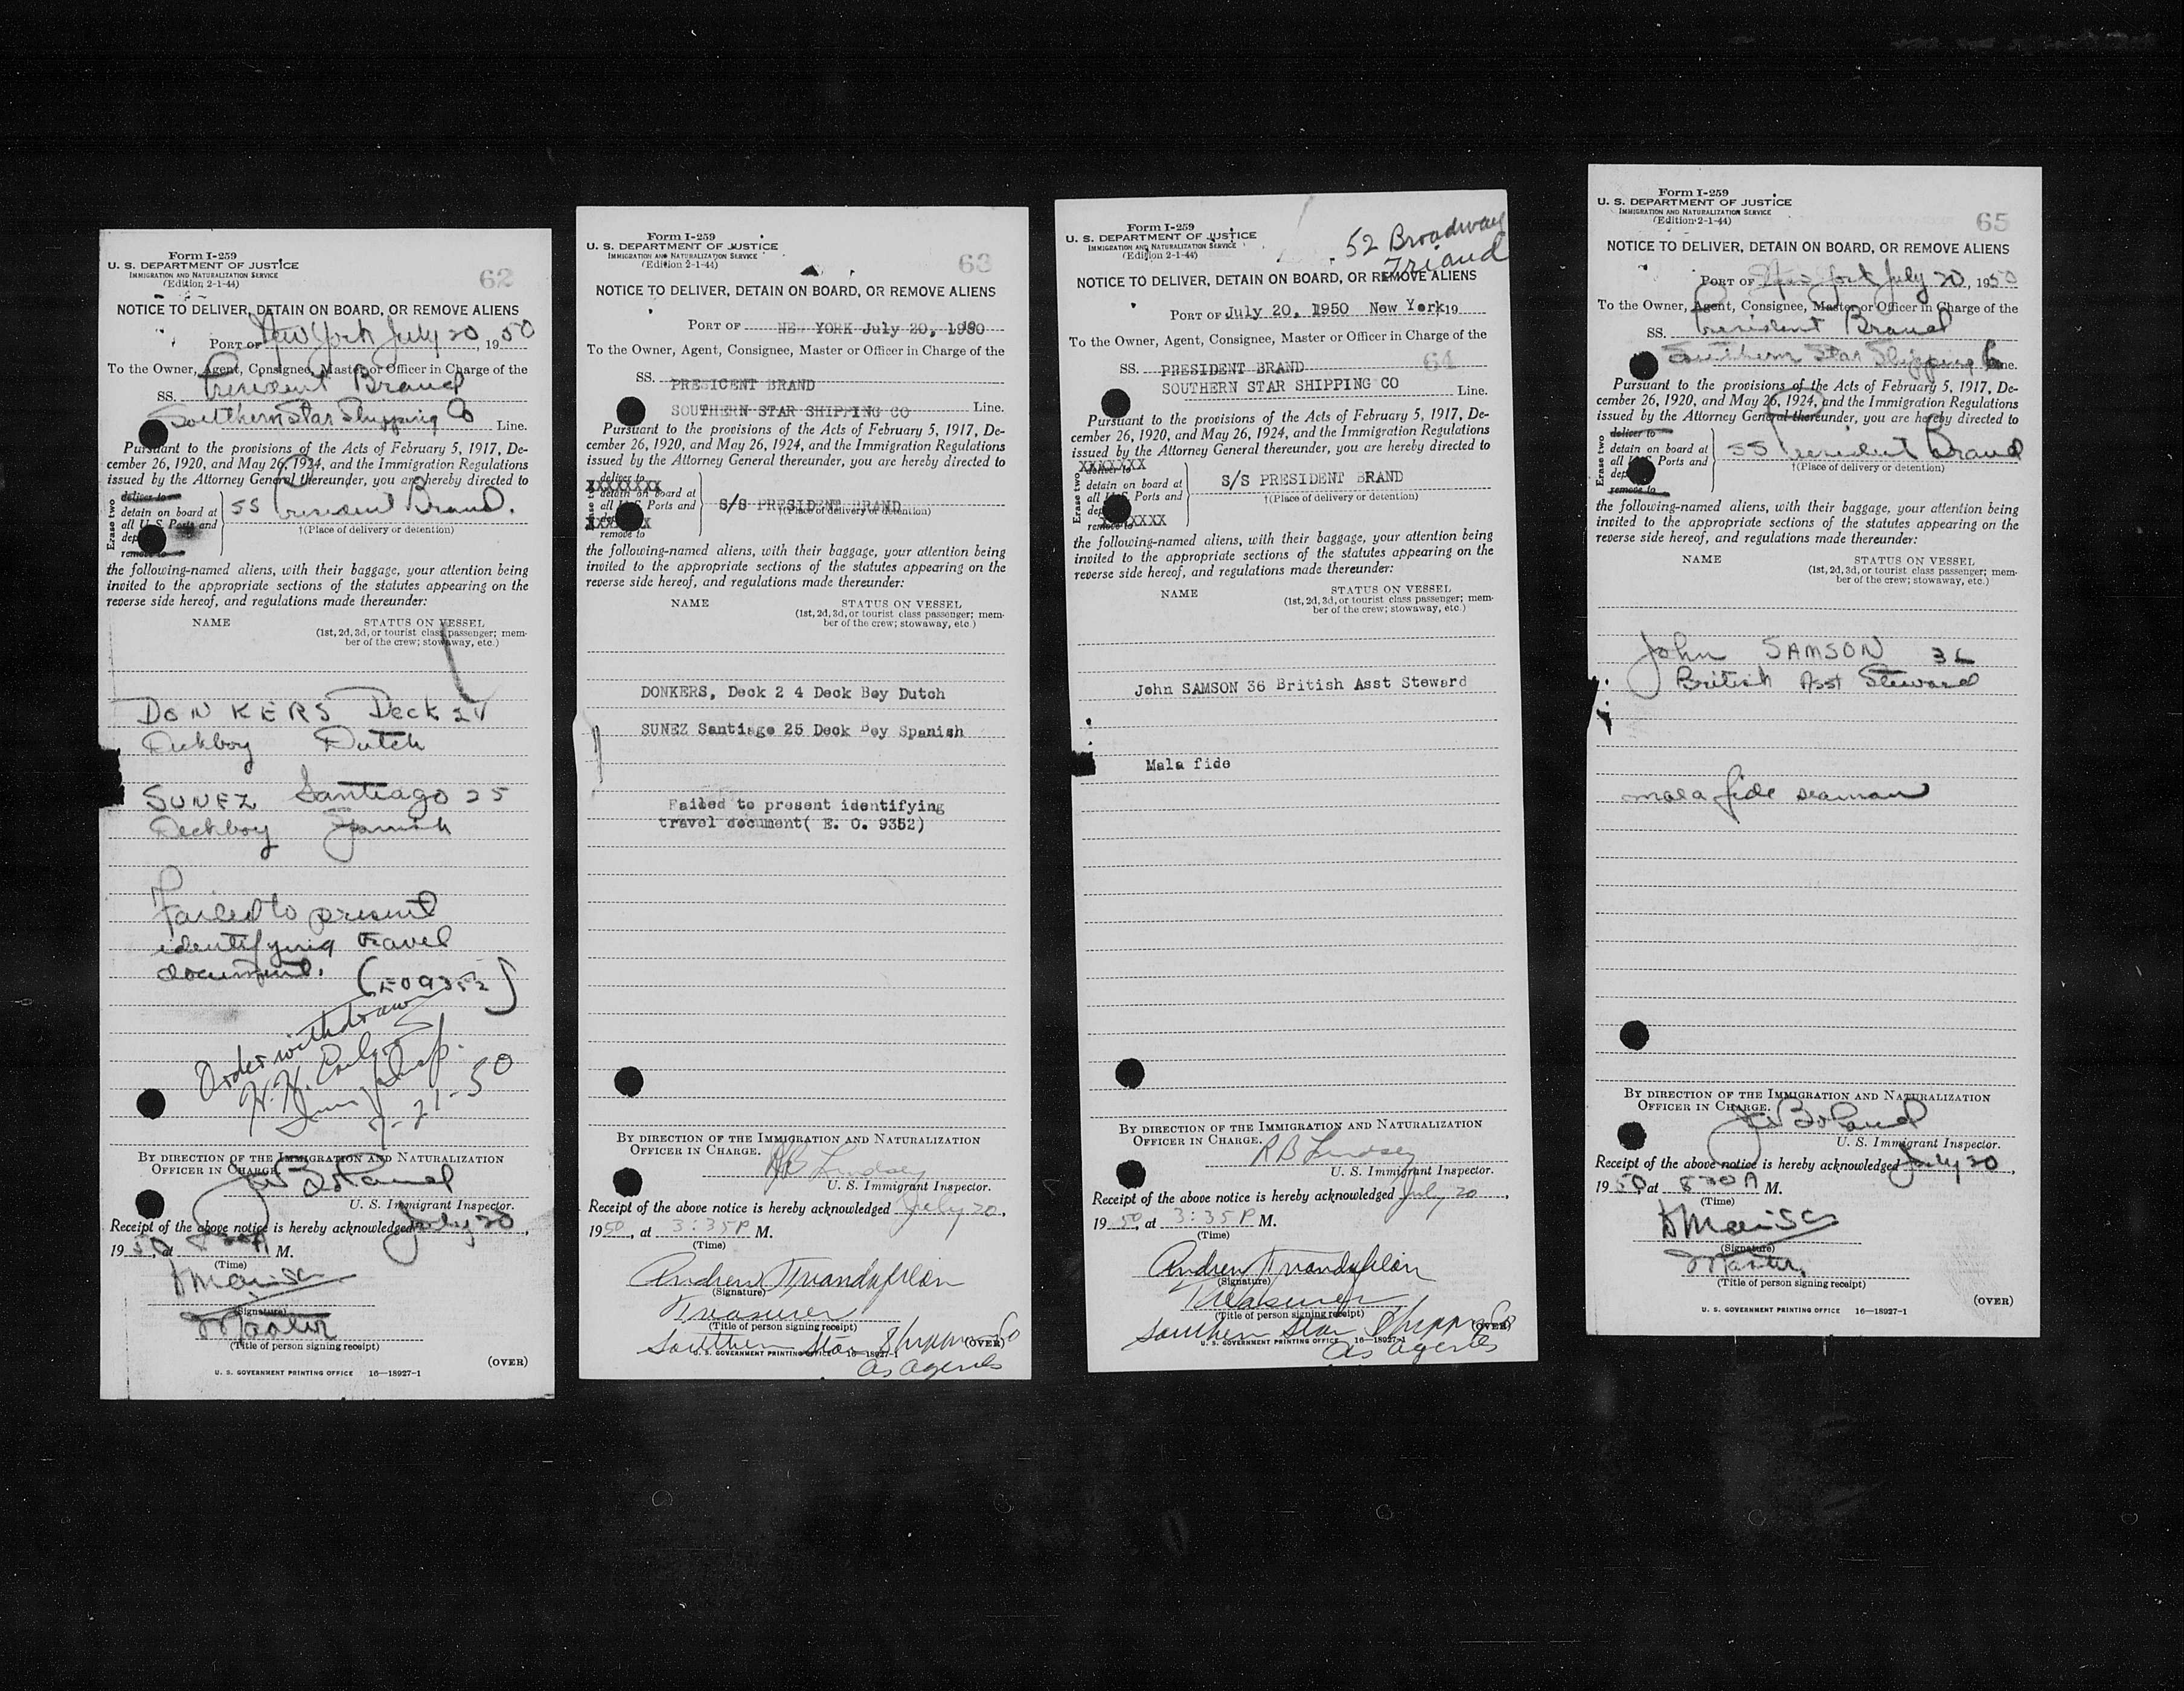 Form I-259
U. S. DEPARTMENT OF JUSTICE
IMMIGRATION AND NATURALIZATION SERVICE
(Edition 2-1-44)
62
NOTICE TO DELIVER, DETAIN ON BOARD, OR REMOVE ALIENS
PORT OF New York July 20, 1950
To the Owner, Agent, Consignee, Master or Officer in Charge of the
SS. President Brand
Southern Star Shipping Co Line.
Pursuant to the provisions of the Acts of February 5, 1917, De-
cember 26, 1920, and May 26, 1924, and the Immigration Regulations
issued by the Attorney General thereunder, you are hereby directed to
Erase two
deliver to
detain on board at
all U.S. Ports and
remove to
SS President Brand.
†(Place of delivery or detention)
the following-named aliens, with their baggage, your attention being
invited to the appropriate sections of the statutes appearing on the
reverse side hereof, and regulations made thereunder:
NAME STATUS ON VESSEL
(1st, 2d, 3d, or tourist class passenger; mem-
ber of the crew; stowaway, etc.)
DONKERS Deck 24
Deckboy Dutch
SUNEZ Santiago 25
Deckboy Spanish
Failed to present
identifying travel
document. (EO 9352)
Order withdrawn
H. H.
7-21-50
BY DIRECTION OF THE IMMIGRATION AND NATURALIZATION
OFFICER IN CHARGE.
U. S. Immigrant Inspector.
Receipt of the above notice is hereby acknowledged July 20,
1950, at 830A M.
(Time)
(Signature)
Master
(Title of person signing receipt)
(OVER)
U. S. GOVERNMENT PRINTING OFFICE 16—18927-1
Form I-259
U. S. DEPARTMENT OF JUSTICE
IMMIGRATION AND NATURALIZATION SERVICE
(Edition 2-1-44)
63
NOTICE TO DELIVER, DETAIN ON BOARD, OR REMOVE ALIENS
PORT OF NEW YORK July 20, 1950
To the Owner, Agent, Consignee, Master or Officer in Charge of the
SS. PRESICENT BRAND
SOUTHERN STAR SHIPPING CO Line.
Pursuant to the provisions of the Acts of February 5, 1917, De-
cember 26, 1920, and May 26, 1924, and the Immigration Regulations
issued by the Attorney General thereunder, you are hereby directed to
deliver to
XXXXXXXX
detain on board at
all U.S. Ports and
remove to
S/S PRESIDENT BRAND
†(Place of delivery or detention)
the following-named aliens, with their baggage, your attention being
invited to the appropriate sections of the statutes appearing on the
reverse side hereof, and regulations made thereunder:
NAME STATUS ON VESSEL
(1st, 2d, 3d, or tourist class passenger; mem-
ber of the crew; stowaway, etc.)
DONKERS, Deck 2 4 Deck Boy Dutch
SUNEZ Santiago 25 Deck Boy Spanish
Failed to present identifying
travel document( E. O. 9352)
BY DIRECTION OF THE IMMIGRATION AND NATURALIZATION
OFFICER IN CHARGE.
RB Lindsey
U. S. Immigrant Inspector.
Receipt of the above notice is hereby acknowledged July 20,
1950, at 3:35P M.
(Time)
Andrew
(Signature)
Treasurer
(Title of person signing receipt)
Southern Star Shipping Co
(OVER)
U. S. GOVERNMENT PRINTING OFFICE 16—18927-1
as agents
Form I-259
U. S. DEPARTMENT OF JUSTICE
IMMIGRATION AND NATURALIZATION SERVICE
(Edition 2-1-44)
52 Broadway
NOTICE TO DELIVER, DETAIN ON BOARD, OR REMOVE ALIENS
PORT OF July 20, 1950 New York 19
To the Owner, Agent, Consignee, Master or Officer in Charge of the
SS. PRESIDENT BRAND 64
SOUTHERN STAR SHIPPING CO Line.
Pursuant to the provisions of the Acts of February 5, 1917, De-
cember 26, 1920, and May 26, 1924, and the Immigration Regulations
issued by the Attorney General thereunder, you are hereby directed to
Erase two
XXXXXXX
deliver to
detain on board at
all U.S. Ports and
remove to
S/S PRESIDENT BRAND
†(Place of delivery or detention)
the following-named aliens, with their baggage, your attention being
invited to the appropriate sections of the statutes appearing on the
reverse side hereof, and regulations made thereunder:
NAME STATUS ON VESSEL
(1st, 2d, 3d, or tourist class passenger; mem-
ber of the crew; stowaway, etc.)
John SAMSON 36 British Asst Steward
Mala fide
BY DIRECTION OF THE IMMIGRATION AND NATURALIZATION
OFFICER IN CHARGE.
RB Lindsey
U. S. Immigrant Inspector.
Receipt of the above notice is hereby acknowledged July 20,
1950, at 3:35P M.
(Time)
Andrew
(Signature)
Treasurer
(Title of person signing receipt)
Southern Star Shipping Co
(OVER)
U. S. GOVERNMENT PRINTING OFFICE 16—18927-1
as agents
Form I-259
U. S. DEPARTMENT OF JUSTICE
IMMIGRATION AND NATURALIZATION SERVICE
(Edition 2-1-44)
65
NOTICE TO DELIVER, DETAIN ON BOARD, OR REMOVE ALIENS
PORT OF New York July 20, 1950
To the Owner, Agent, Consignee, Master or Officer in Charge of the
SS. President Brand
Southern Star Shipping Co Line.
Pursuant to the provisions of the Acts of February 5, 1917, De-
cember 26, 1920, and May 26, 1924, and the Immigration Regulations
issued by the Attorney General thereunder, you are hereby directed to
Erase two
deliver to
detain on board at
all U.S. Ports and
remove to
SS President Brand
†(Place of delivery or detention)
the following-named aliens, with their baggage, your attention being
invited to the appropriate sections of the statutes appearing on the
reverse side hereof, and regulations made thereunder:
NAME STATUS ON VESSEL
(1st, 2d, 3d, or tourist class passenger; mem-
ber of the crew; stowaway, etc.)
John SAMSON 36
British Asst Steward
mala fide seaman
BY DIRECTION OF THE IMMIGRATION AND NATURALIZATION
OFFICER IN CHARGE.
U. S. Immigrant Inspector.
Receipt of the above notice is hereby acknowledged July 20,
1950 at 830A M.
(Time)
(Signature)
Master
(Title of person signing receipt)
(OVER)
U. S. GOVERNMENT PRINTING OFFICE 16—18927-1